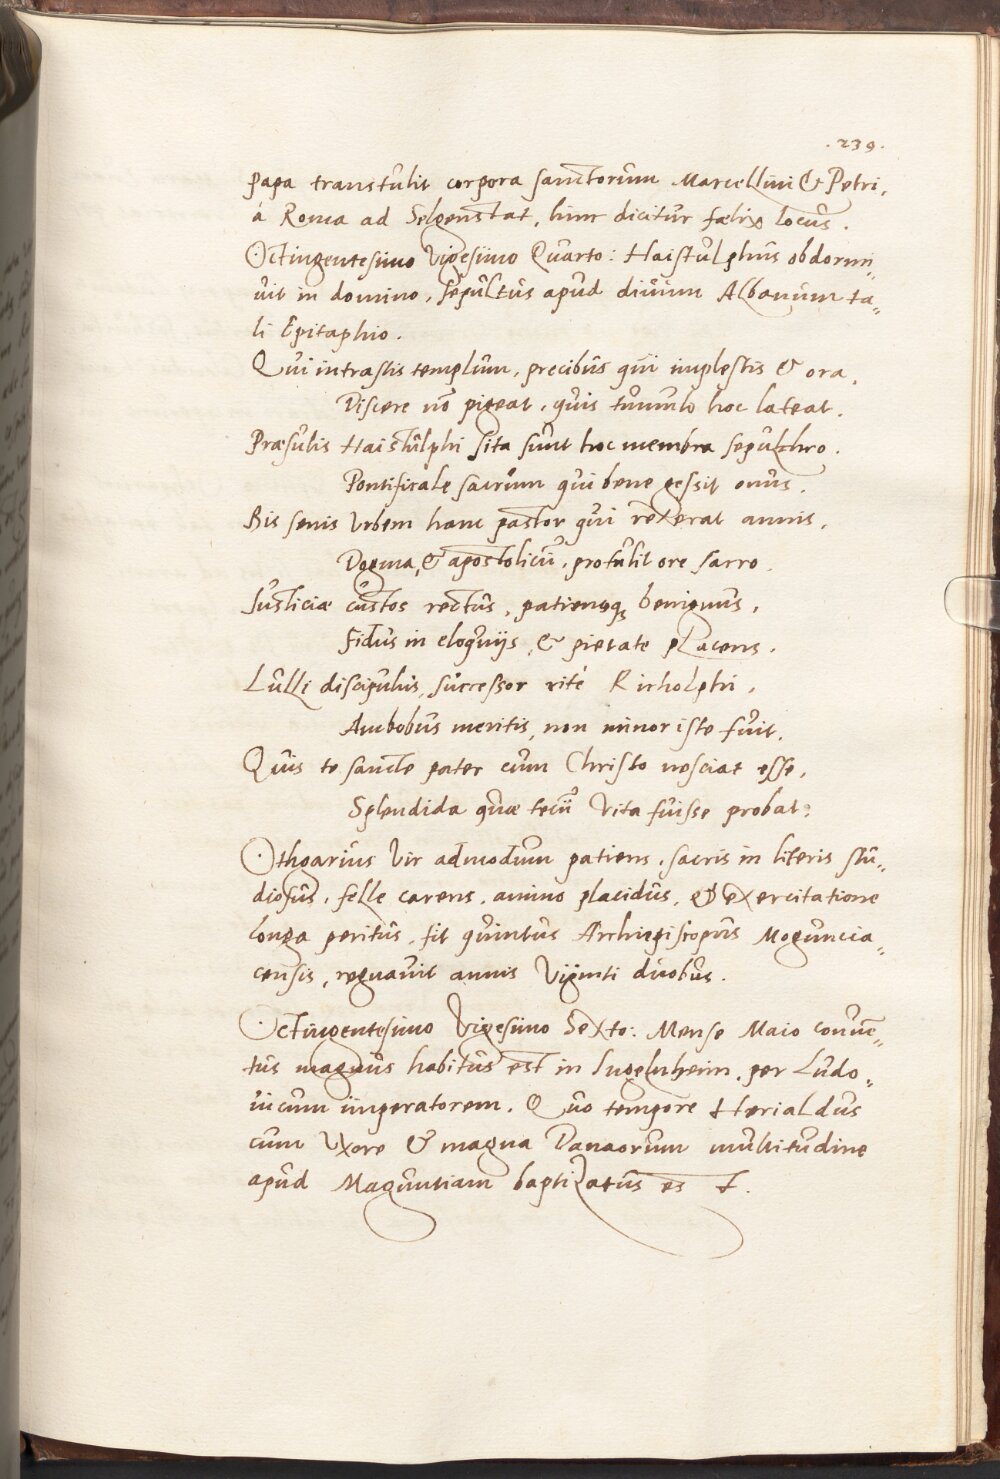 .239.
papa transtulit corpora sanctorum Marcellini & Petri,
á Roma ad Selgenstat, hinc dicitur fælix locus.
Octingentesimo Vigesimo Quarto: Haistulphus obdormi„
uit in domino, sepultus apud diuum Albanum ta„
li Epitaphio.
Qui intrastis templum, precibus qui implestis & ora,
Discere nō pigeat, quis tumulo hoc lateat.
Præsulis Haistulphi sita sunt hoc membra sepulchro.
Pontificale sacrum qui bene gessit onus.
Bis senis Vrbem hanc pastor qui rexerat annis,
Dogma, & apostolicū, protulit ore sacro.
Iusticiæ custos rectus, patiensq; benignus,
Fidus in eloquijs, & pietate placens.
Lulli discipulus, successor rité Richolphi,
Ambobus meritis, non minor iste fuit.
Quis te sancte pater cum Christo nesciat esse,
Splendida quæ tecū Vita fuisse probat?
Othgarius Vir admodum patiens, sacris in literis stu„
diosus, felle carens, animo placidus, & exercitatione
longa peritus, fit quintus Archiepiscopus Moguncia„
censis, regnauit annis Viginti duobus.
Octingentesimo Vigesimo Sexto: Mense Maio conuē„
tus magnus habitus est in Ingelnheim, per Ludo„
uicum imperatorem. Quo tempore Herialdus
cum Vxore & magna Danaorum multitudine
apud Maguntiam baptizatus es t.